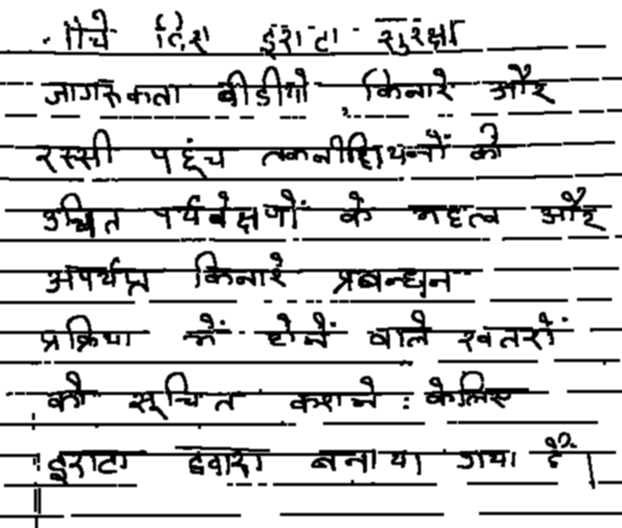 नीचे दिए इराटा सुरक्षा
जागरुकता वीडीयो, किनारे और
रस्सी पहुंच तकनीशियनों को
उचित पर्यवेक्षणों के महत्व और
अपर्याप्त किनारे प्रबन्धन
प्रक्रिया में होने वाले खतरों
को सूचित कराने केलिए
इराटा द्वारा बनाया गया है।